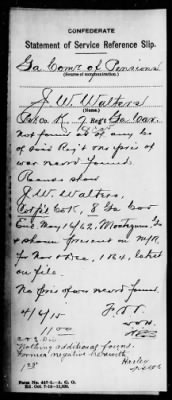 CONFEDERATE
Statement of Service Reference Slip.
Ga Comr. of Pensions
(Source of communication.)
J. W. Walters
(Name.)
Pvt Co. K. 7 Reg't Ga Cav.
Not found as of any Co
of said Reg't one pris of
war record found.
Records show
J. W. Walters,
Corp'l Co K, 8 Ga Cav
Enl May 16/62, Montezuma, Ga
& shown present on M/R
for Nov & Dec, 1864, latest
on file.
No pris of war record found.
4/6/15
1100
Nothing additional found.
Former negative
Form No. 447-1—A. G. O.